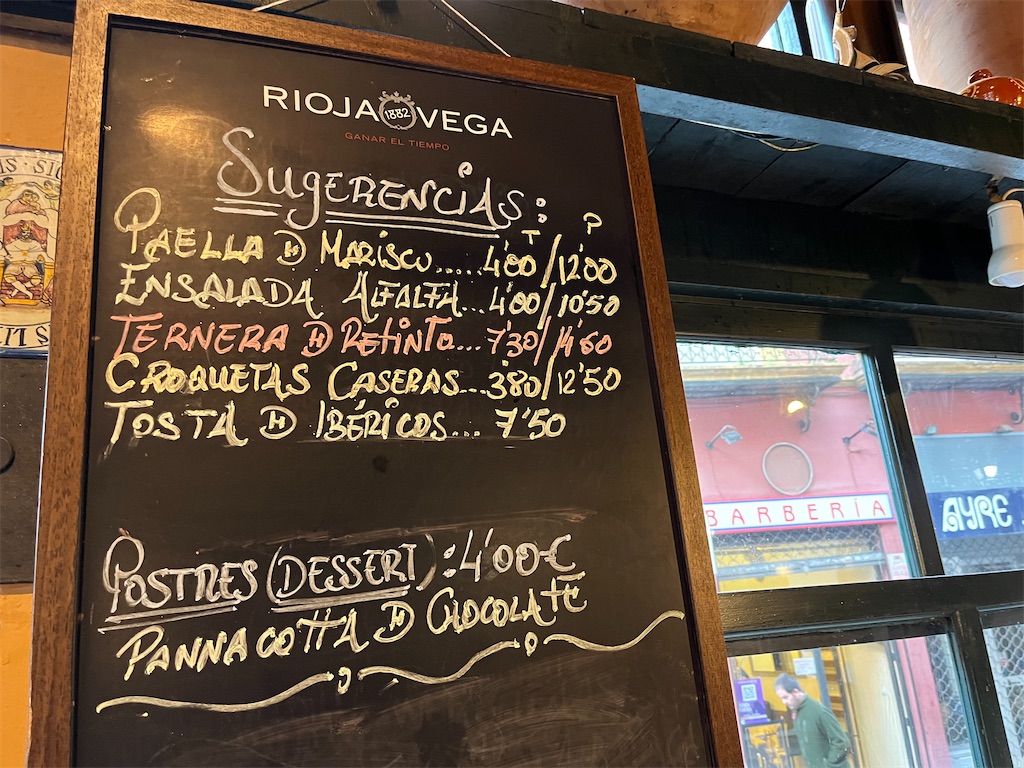 RIOJA 1882 VEGA
GANAR EL TIEMPO
SUGERENCIAS:
T P
PAELLA D MARISCO..... 4'00/12'00
ENSALADA ALFALFA.. 4'00/10'50
TERNERA D RETINTO... 7'30/14'60
CROQUETAS CASERAS... 3'80/12'50
TOSTA D IBÉRICOS... 7'50
POSTRES (DESSERT): 4'00€
PANNACOTTA D CHOCOLATE
BARBERÍA
AYRE